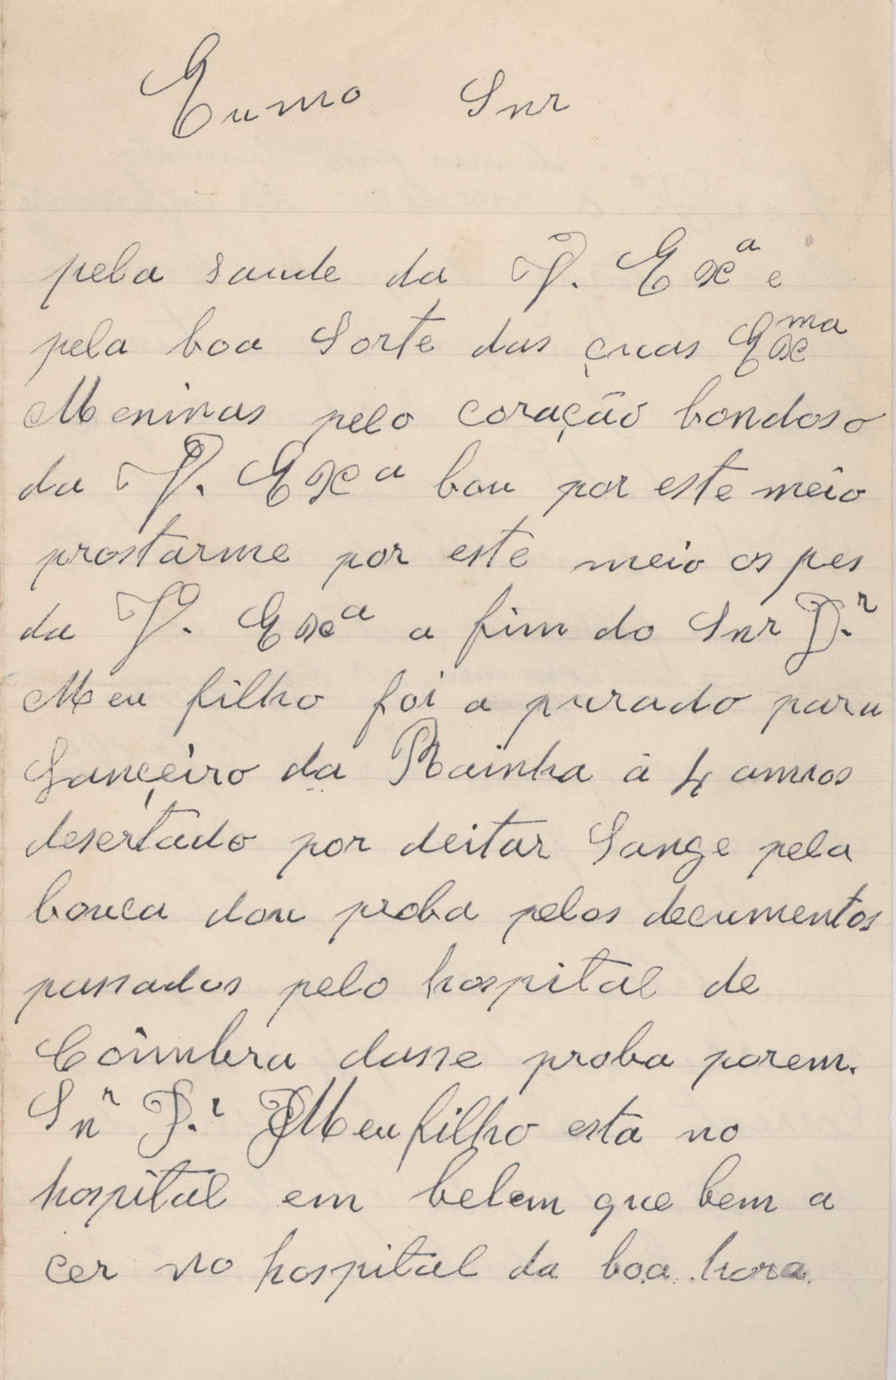 Eumo Snr
pela saude da V. Exª e
pela boa Sorte das çuas Exma
Meninas pelo coração bondoso
da V. Exª bou por este meio
prostarme por este meio os pes
da V. Exª a fim do Snr D.r
Meu filho foi a purado para
Lançeiro da Rainha á 4 annos
desertado por deitar Sange pela
bouca dou proba pelos decumentos
passados pelo hospital de
Coimbra dasse proba porem.
Snr D.r Meu filho esta no
hospital em belem que bem a
cer no hospital da boa hora